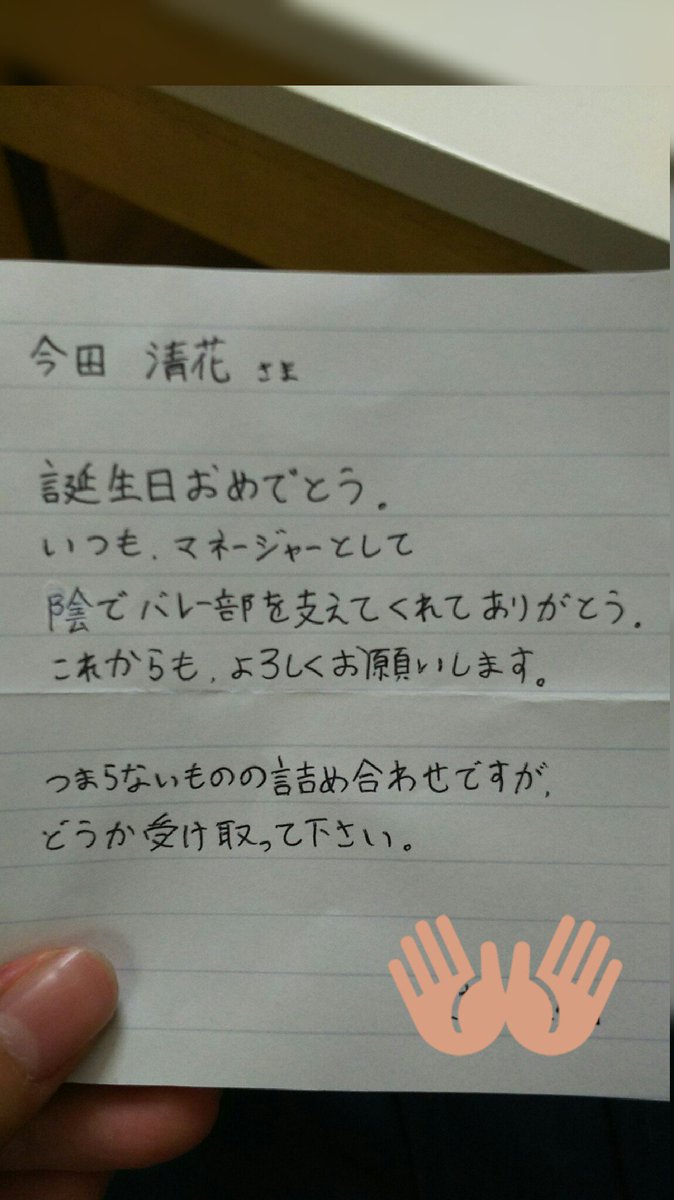 今田 清花 さま
誕生日おめでとう.
いつも、マネージャーとして
陰でバレー部を支えてくれてありがとう.
これからも、よろしくお願いします。
つまらないものの詰め合わせですが、
どうか受け取って下さい。